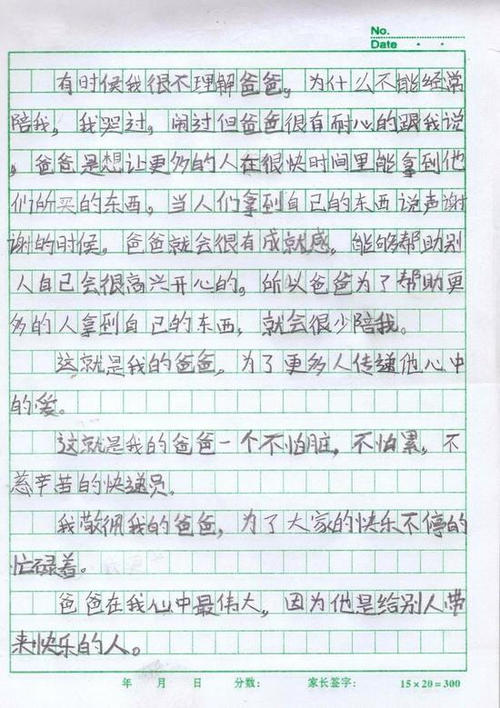 No.
Date
有时候我很不理解爸爸，为什么不能经常
陪我，我哭过，闹过但爸爸很有耐心的跟我说
，爸爸是想让更多的人在很快时间里能拿到他
们所买的东西，当人们拿到自已的东西说声谢
谢的时候，爸爸就会很有成就感，能够帮助别
人自己会很高兴开心的。所以爸爸为了帮助更
多的人拿到自已的东西，就会很少陪我。
这就是我的爸爸，为了更多人传递他心中
的爱。
这就是我的爸爸一个不怕脏，不怕累，不
怠辛苦的快递员。
我敬佩我的爸爸，为了大家的快乐不停的
忙碌着。
爸爸在我心中最伟大，因为他是给别人带
来快乐的人。
年 月 日 分数： 家长签字： 15×20=300